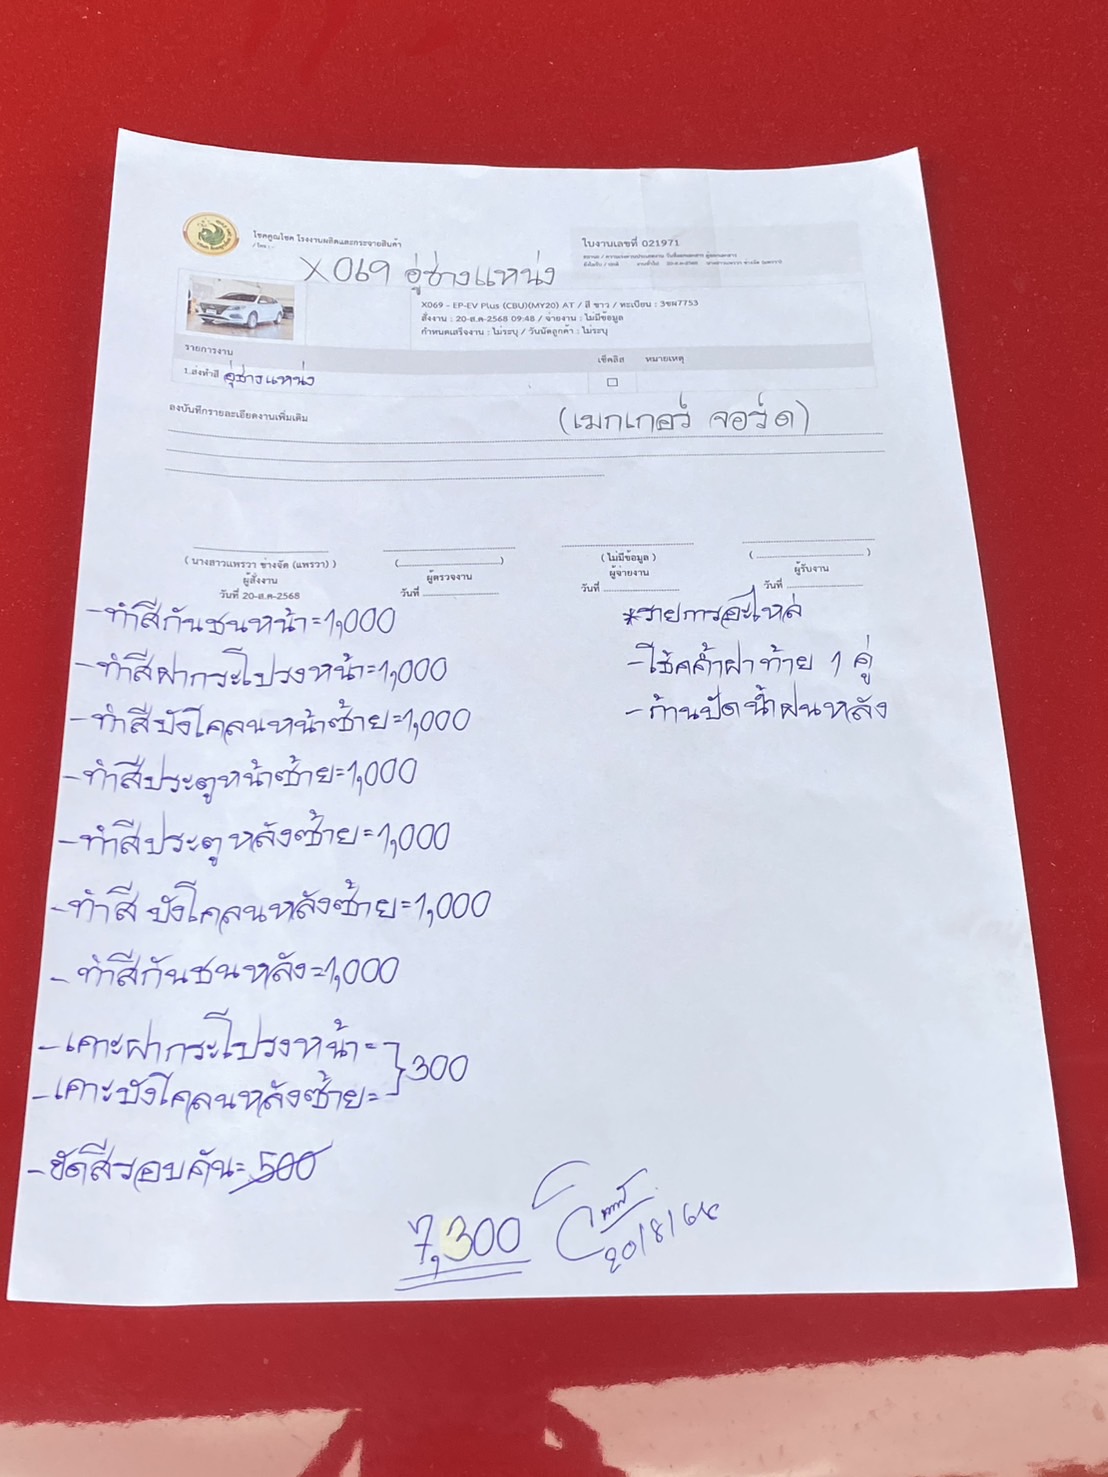 โชคคูณโชค โรงงานผลิตและกระจายสินค้า
/ โทร : -
ใบงานเลขที่ 021971
X069 อู่ช่างแหน่ง
X069 - EP-EV Plus (CBU)(MY20) AT / สี ขาว / ทะเบียน : 3ขผ7753
สั่งงาน : 20-ส.ค-2568 09:48 / จ่ายงาน : ไม่มีข้อมูล
กำหนดเสร็จงาน : ไม่ระบุ / วันนัดลูกค้า : ไม่ระบุ
รายการงาน เช็คลิส หมายเหตุ
1.ส่งทำสี อู่ช่างแหน่ง
ลงบันทึกรายละเอียดงานเพิ่มเติม
(เมกเกอร์ จอร์ด)
( นางสาวแพรวา ช่างจัด (แพรวา) ) (ไม่มีข้อมูล )
ผู้สั่งงาน ผู้ตรวจงาน ผู้จ่ายงาน ผู้รับงาน
วันที่ 20-ส.ค-2568 วันที่ วันที่ วันที่
-ทำสีกันชนหน้า=1,000
-ทำสีฝากระโปรงหน้า=1,000
-ทำสีบังโคลนหน้าซ้าย=1,000
-ทำสีประตูหน้าซ้าย=1,000
-ทำสีประตูหลังซ้าย=1,000
-ทำสีบังโคลนหลังซ้าย=1,000
-ทำสีกันชนหลัง=1,000
-เคาะฝากระโปรงหน้า=
-เคาะบังโคลนหลังซ้าย=
}300
-ขัดสีรอบคัน=500
7,300
20/8/68
*รายการอะไหล่
-โช้คค้ำฝาท้าย 1 คู่
-ก้านปัดน้ำฝนหลัง